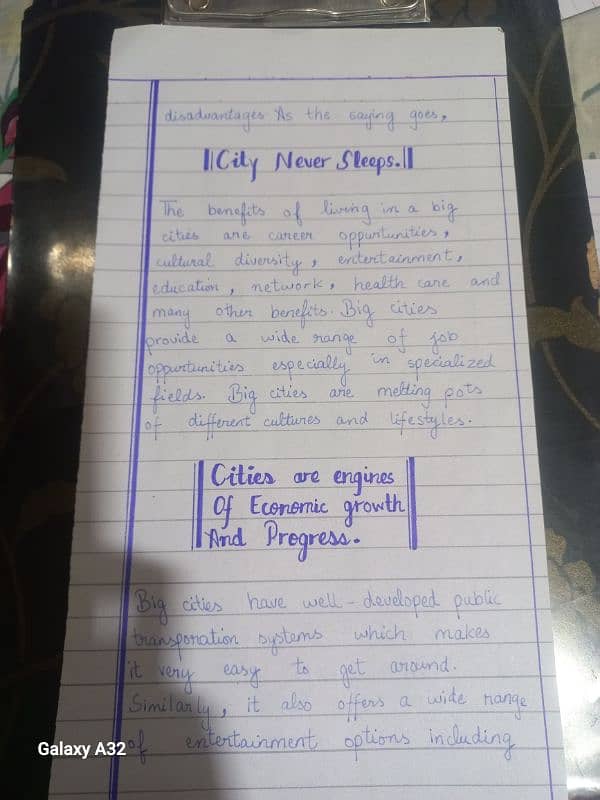 disadvantages As the saying goes,
||City Never Sleeps.||
The benefits of living in a big
cities are career oppurtunities,
cultural diversity, entertainment,
education, network, health care and
many other benefits. Big cities
provide a wide range of job
oppurtunities especially in specialized
fields. Big cities are melting pots
of different cultures and lifestyles.
Cities are engines
Of Economic growth
And Progress.
Big cities have well-developed public
transporation systems which makes
it very easy to get around.
Similarly, it also offers a wide range
of entertainment options including
Galaxy A32